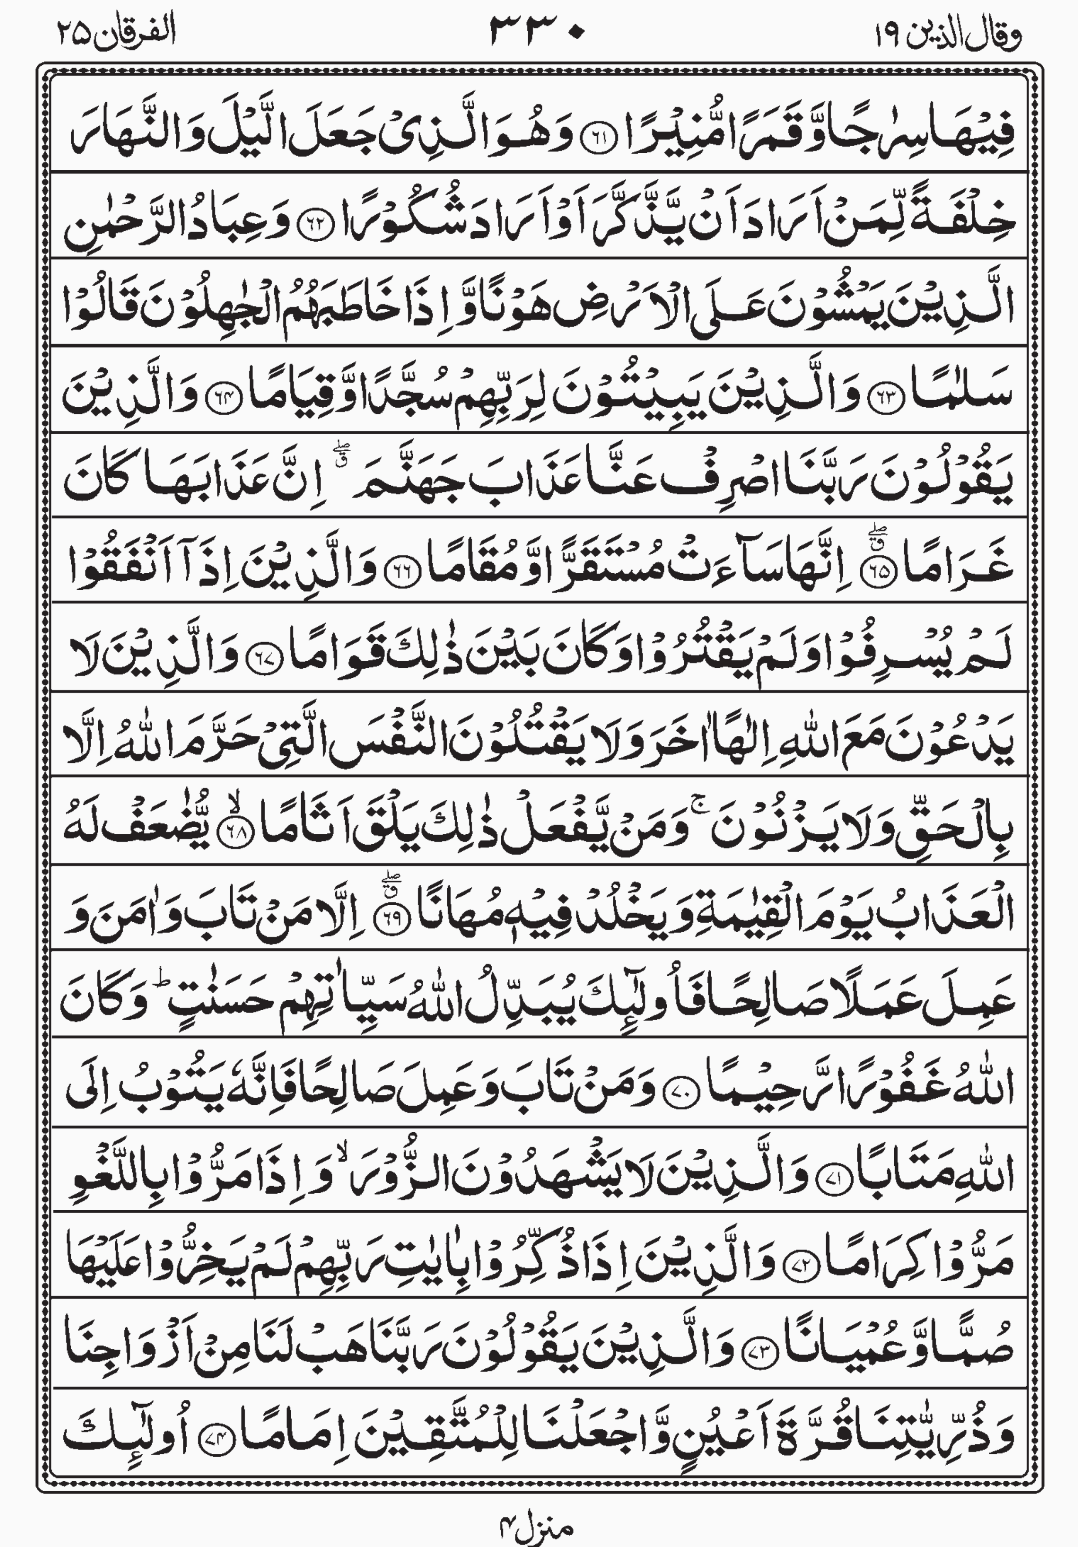 وقال الذين ١٩ ٣٣٠ الفرقان ٢٥
فِيْهَا سِرٰجًا وَّقَمَرًا مُّنِيْرًا ﴿٦١﴾ وَهُوَ الَّذِىْ جَعَلَ الَّيْلَ وَالنَّهَارَ
خِلْفَةً لِّمَنْ اَرَادَ اَنْ يَّذَّكَّرَ اَوْ اَرَادَ شُكُوْرًا ﴿٦٢﴾ وَعِبَادُ الرَّحْمٰنِ
الَّذِيْنَ يَمْشُوْنَ عَلَى الْاَرْضِ هَوْنًا وَّاِذَا خَاطَبَهُمُ الْجٰهِلُوْنَ قَالُوْا
سَلٰمًا ﴿٦٣﴾ وَالَّذِيْنَ يَبِيْتُوْنَ لِرَبِّهِمْ سُجَّدًا وَّقِيَامًا ﴿٦۴﴾ وَالَّذِيْنَ
يَقُوْلُوْنَ رَبَّنَا اصْرِفْ عَنَّا عَذَابَ جَهَنَّمَ ۖق اِنَّ عَذَابَهَا كَانَ
غَرَامًا ۖق ﴿٦۵﴾ اِنَّهَا سَآءَتْ مُسْتَقَرًّا وَّمُقَامًا ﴿٦٦﴾ وَالَّذِيْنَ اِذَآ اَنْفَقُوْا
لَمْ يُسْرِفُوْا وَلَمْ يَقْتُرُوْا وَكَانَ بَيْنَ ذٰلِكَ قَوَامًا ﴿٦٧﴾ وَالَّذِيْنَ لَا
يَدْعُوْنَ مَعَ اللّٰهِ اِلٰهًا اٰخَرَ وَلَا يَقْتُلُوْنَ النَّفْسَ الَّتِىْ حَرَّمَ اللّٰهُ اِلَّا
بِالْحَقِّ وَلَا يَزْنُوْنَ ۚ وَمَنْ يَّفْعَلْ ذٰلِكَ يَلْقَ اَثَامًا ۙ ﴿٦٨﴾ يُّضٰعَفْ لَهُ
الْعَذَابُ يَوْمَ الْقِيٰمَةِ وَيَخْلُدْ فِيْهٖ مُهَانًا ۖق ﴿٦٩﴾ اِلَّا مَنْ تَابَ وَاٰمَنَ وَ
عَمِلَ عَمَلًا صَالِحًا فَاُولٰٓئِكَ يُبَدِّلُ اللّٰهُ سَيِّاٰتِهِمْ حَسَنٰتٍ ؕ وَكَانَ
اللّٰهُ غَفُوْرًا رَّحِيْمًا ﴿٧٠﴾ وَمَنْ تَابَ وَعَمِلَ صَالِحًا فَاِنَّهٗ يَتُوْبُ اِلَى
اللّٰهِ مَتَابًا ﴿٧١﴾ وَالَّذِيْنَ لَا يَشْهَدُوْنَ الزُّوْرَ ۙ وَاِذَا مَرُّوْا بِاللَّغْوِ
مَرُّوْا كِرَامًا ﴿٧٢﴾ وَالَّذِيْنَ اِذَا ذُكِّرُوْا بِاٰيٰتِ رَبِّهِمْ لَمْ يَخِرُّوْا عَلَيْهَا
صُمًّا وَّعُمْيَانًا ﴿٧٣﴾ وَالَّذِيْنَ يَقُوْلُوْنَ رَبَّنَا هَبْ لَنَا مِنْ اَزْوَاجِنَا
وَذُرِّيّٰتِنَا قُرَّةَ اَعْيُنٍ وَّاجْعَلْنَا لِلْمُتَّقِيْنَ اِمَامًا ﴿٧۴﴾ اُولٰٓئِكَ
منزل ۴